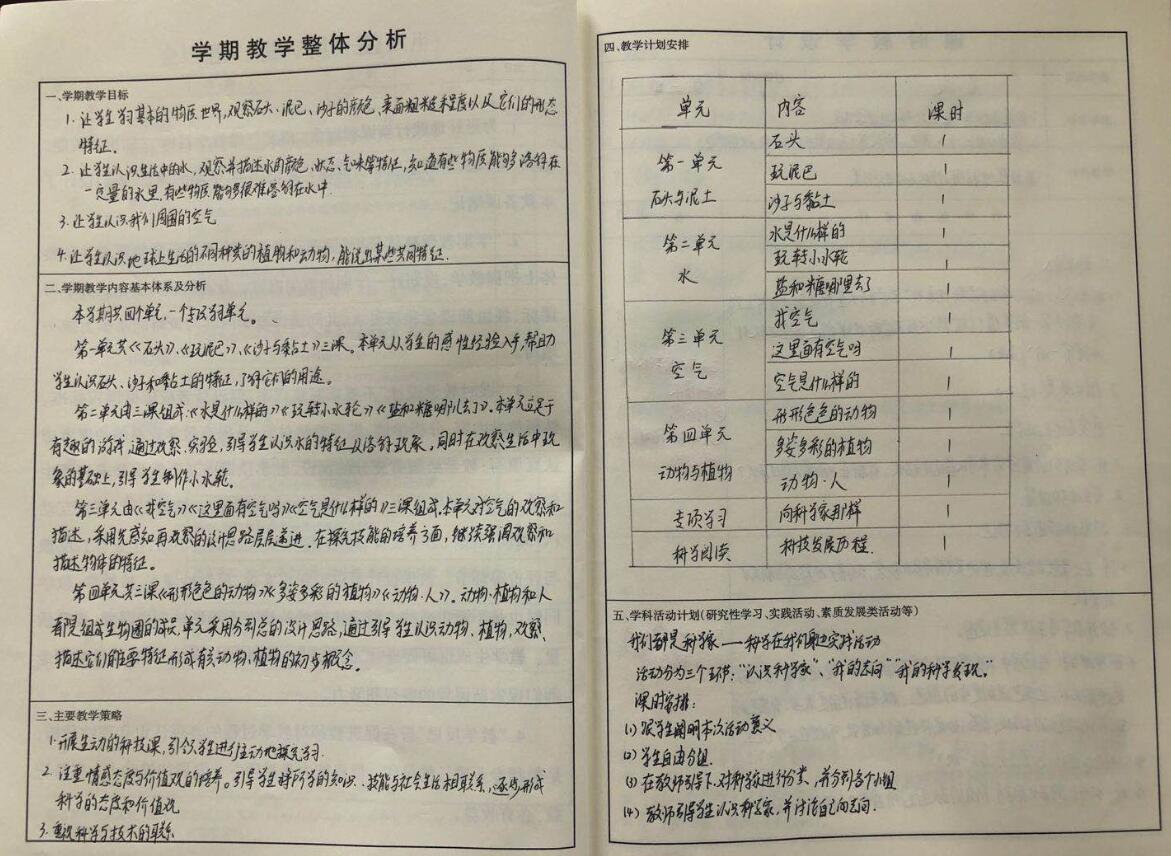 学期教学整体分析
一、学期教学目标
1. 让学生学习基本的物质世界,观察石头、泥巴、沙子的颜色、表面粗糙程度以及它们的形态
特征.
2. 让学生认识生活中的水,观察并描述水的颜色、状态、气味等特征,知道有些物质能够溶解在
一定量的水里,有些物质能够很难溶解在水中.
3. 让学生认识我们周围的空气
4. 让学生认识地球上生活的不同种类的植物和动物,能说出某些共同特征.
二、学期教学内容基本体系及分析
本学期共四个单元,一个专项学习单元。
第一单元共《石头》、《玩泥巴》、《沙子与黏土》三课。本单元从学生的感性经验入手,帮助
学生认识石头、沙子和黏土的特征,了解它们的用途。
第二单元由三课组成《水是什么样的》《玩转小水轮》《盐和糖哪儿去了》。本单元立足于
有趣的游戏,通过观察、实验,引导学生认识水的特征及溶解现象,同时在观察生活中现
象的基础上,引导学生制作小水轮。
第三单元由《找空气》《这里面有空气吗》《空气是什么样的》三课组成.本单元对空气的观察和
描述,采用先感知再观察的设计思路层层递进.在探究技能的培养方面,继续强调观察和
描述物体的特征。
第四单元共三课《形形色色的动物》《多姿多彩的植物》《动物·人》。动物、植物和人
都是组成生物圈的成员,单元采用分到总的设计思路,通过引导学生认识动物、植物,观察、
描述它们的主要特征形成有关动物、植物的初步概念。
三、主要教学策略
1. 开展生动的科技课,引领学生进行主动地探究学习.
2. 注重情感态度与价值观的培养。引导学生将所学的知识、技能与社会生活相联系,逐步形成
科学的态度和价值观
3. 重视科学与技术的联系
四、教学计划安排
单元 内容 课时
石头 1
第一单元 玩泥巴 1
石头与泥土 沙子与黏土 1
水是什么样的 1
第二单元 玩转小水轮 1
水 盐和糖哪里去了 1
找空气 1
第三单元 这里面有空气吗 1
空气 空气是什么样的 1
形形色色的动物 1
第四单元 多姿多彩的植物 1
动物与植物 动物·人 1
专项学习 像科学家那样 1
科学阅读 科技发展历程. 1
五、学科活动计划(研究性学习、实践活动、素质发展类活动等)
我们都是科学家——科学在我们身边实践活动
活动分为三个环节:“认识科学家”、“我的志向”“我的科学发现。”
课时安排:
(1) 跟学生阐明本次活动意义
(2) 学生自由分组.
(3) 在教师引导下.对科学家进行分类,并分到各个小组
(4) 教师引导学生认识科学家,并讨论自己的志向.